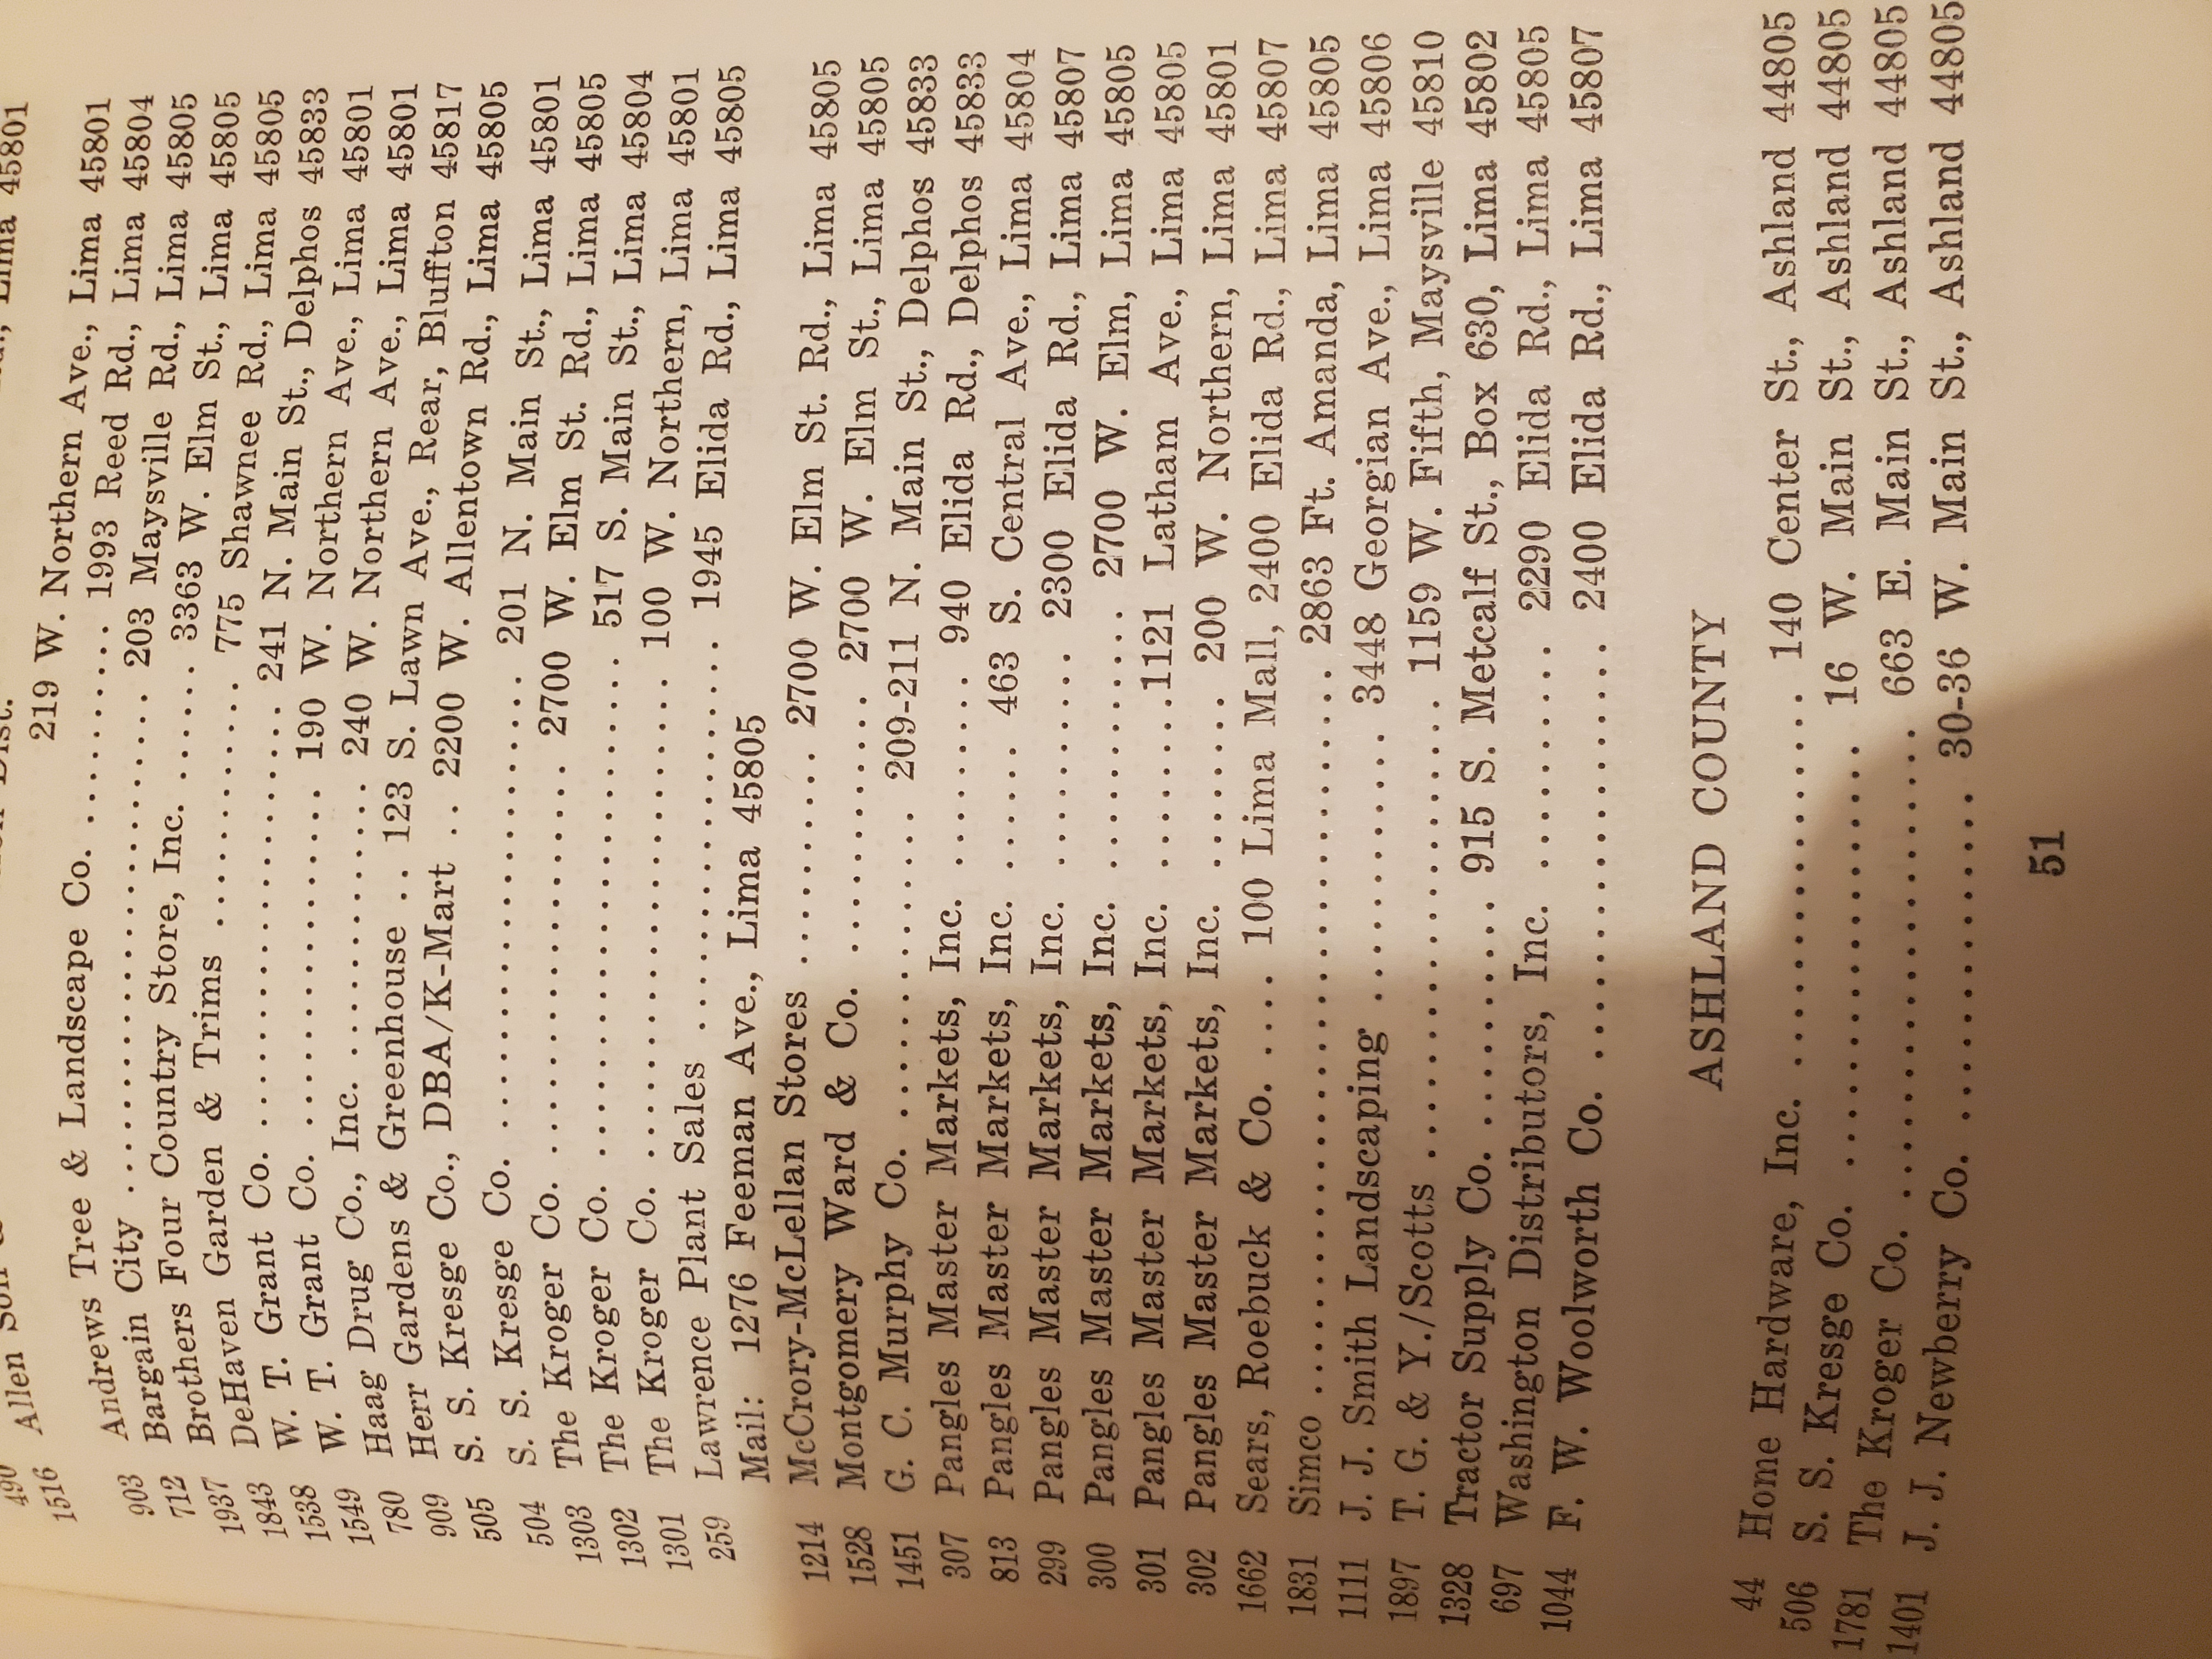 490
1516 Allen Dist.
219 W. Northern Ave., Lima 45801
903 Andrews Tree & Landscape Co. ....... 1993 Reed Rd., Lima 45804
712 Bargain City ........................ 203 Maysville Rd., Lima 45805
1937 Brothers Four Country Store, Inc. ..... 3363 W. Elm St., Lima 45805
1843 DeHaven Garden & Trims ............. 775 Shawnee Rd., Lima 45805
1538 W. T. Grant Co. .................... 241 N. Main St., Delphos 45833
1549 W. T. Grant Co. ................ 190 W. Northern Ave., Lima 45801
780 Haag Drug Co., Inc. ............. 240 W. Northern Ave., Lima 45801
909 Herr Gardens & Greenhouse .. 123 S. Lawn Ave., Rear, Bluffton 45817
505 S. S. Kresge Co., DBA/K-Mart .. 2200 W. Allentown Rd., Lima 45805
504 S. S. Kresge Co. ......................... 201 N. Main St., Lima 45801
1303 The Kroger Co. ..................... 2700 W. Elm St. Rd., Lima 45805
1302 The Kroger Co. .......................... 517 S. Main St., Lima 45804
1301 The Kroger Co. ......................... 100 W. Northern, Lima 45801
259 Lawrence Plant Sales .................... 1945 Elida Rd., Lima 45805
Mail: 1276 Feeman Ave., Lima 45805
1214 McCrory-McLellan Stores ........... 2700 W. Elm St. Rd., Lima 45805
1528 Montgomery Ward & Co. ............. 2700 W. Elm St., Lima 45805
1451 G. C. Murphy Co. ............... 209-211 N. Main St., Delphos 45833
307 Pangles Master Markets, Inc. ......... 940 Elida Rd., Delphos 45833
813 Pangles Master Markets, Inc. ...... 463 S. Central Ave., Lima 45804
299 Pangles Master Markets, Inc. .......... 2300 Elida Rd., Lima 45807
300 Pangles Master Markets, Inc. ............ 2700 W. Elm, Lima 45805
301 Pangles Master Markets, Inc. ........ 1121 Latham Ave., Lima 45805
302 Pangles Master Markets, Inc. ........ 200 W. Northern, Lima 45801
1662 Sears, Roebuck & Co. .... 100 Lima Mall, 2400 Elida Rd., Lima 45807
1831 Simco ................................... 2863 Ft. Amanda, Lima 45805
1111 J. J. Smith Landscaping ............. 3448 Georgian Ave., Lima 45806
1897 T. G. & Y./Scotts ..................... 1159 W. Fifth, Maysville 45810
1328 Tractor Supply Co. .......... 915 S. Metcalf St., Box 630, Lima 45802
697 Washington Distributors, Inc. .......... 2290 Elida Rd., Lima 45805
1044 F. W. Woolworth Co. ..................... 2400 Elida Rd., Lima 45807
ASHLAND COUNTY
44 Home Hardware, Inc. .................. 140 Center St., Ashland 44805
506 S. S. Kresge Co. ..................... 16 W. Main St., Ashland 44805
1781 The Kroger Co. ....................... 663 E. Main St., Ashland 44805
1401 J. J. Newberry Co. ................. 30-36 W. Main St., Ashland 44805
51